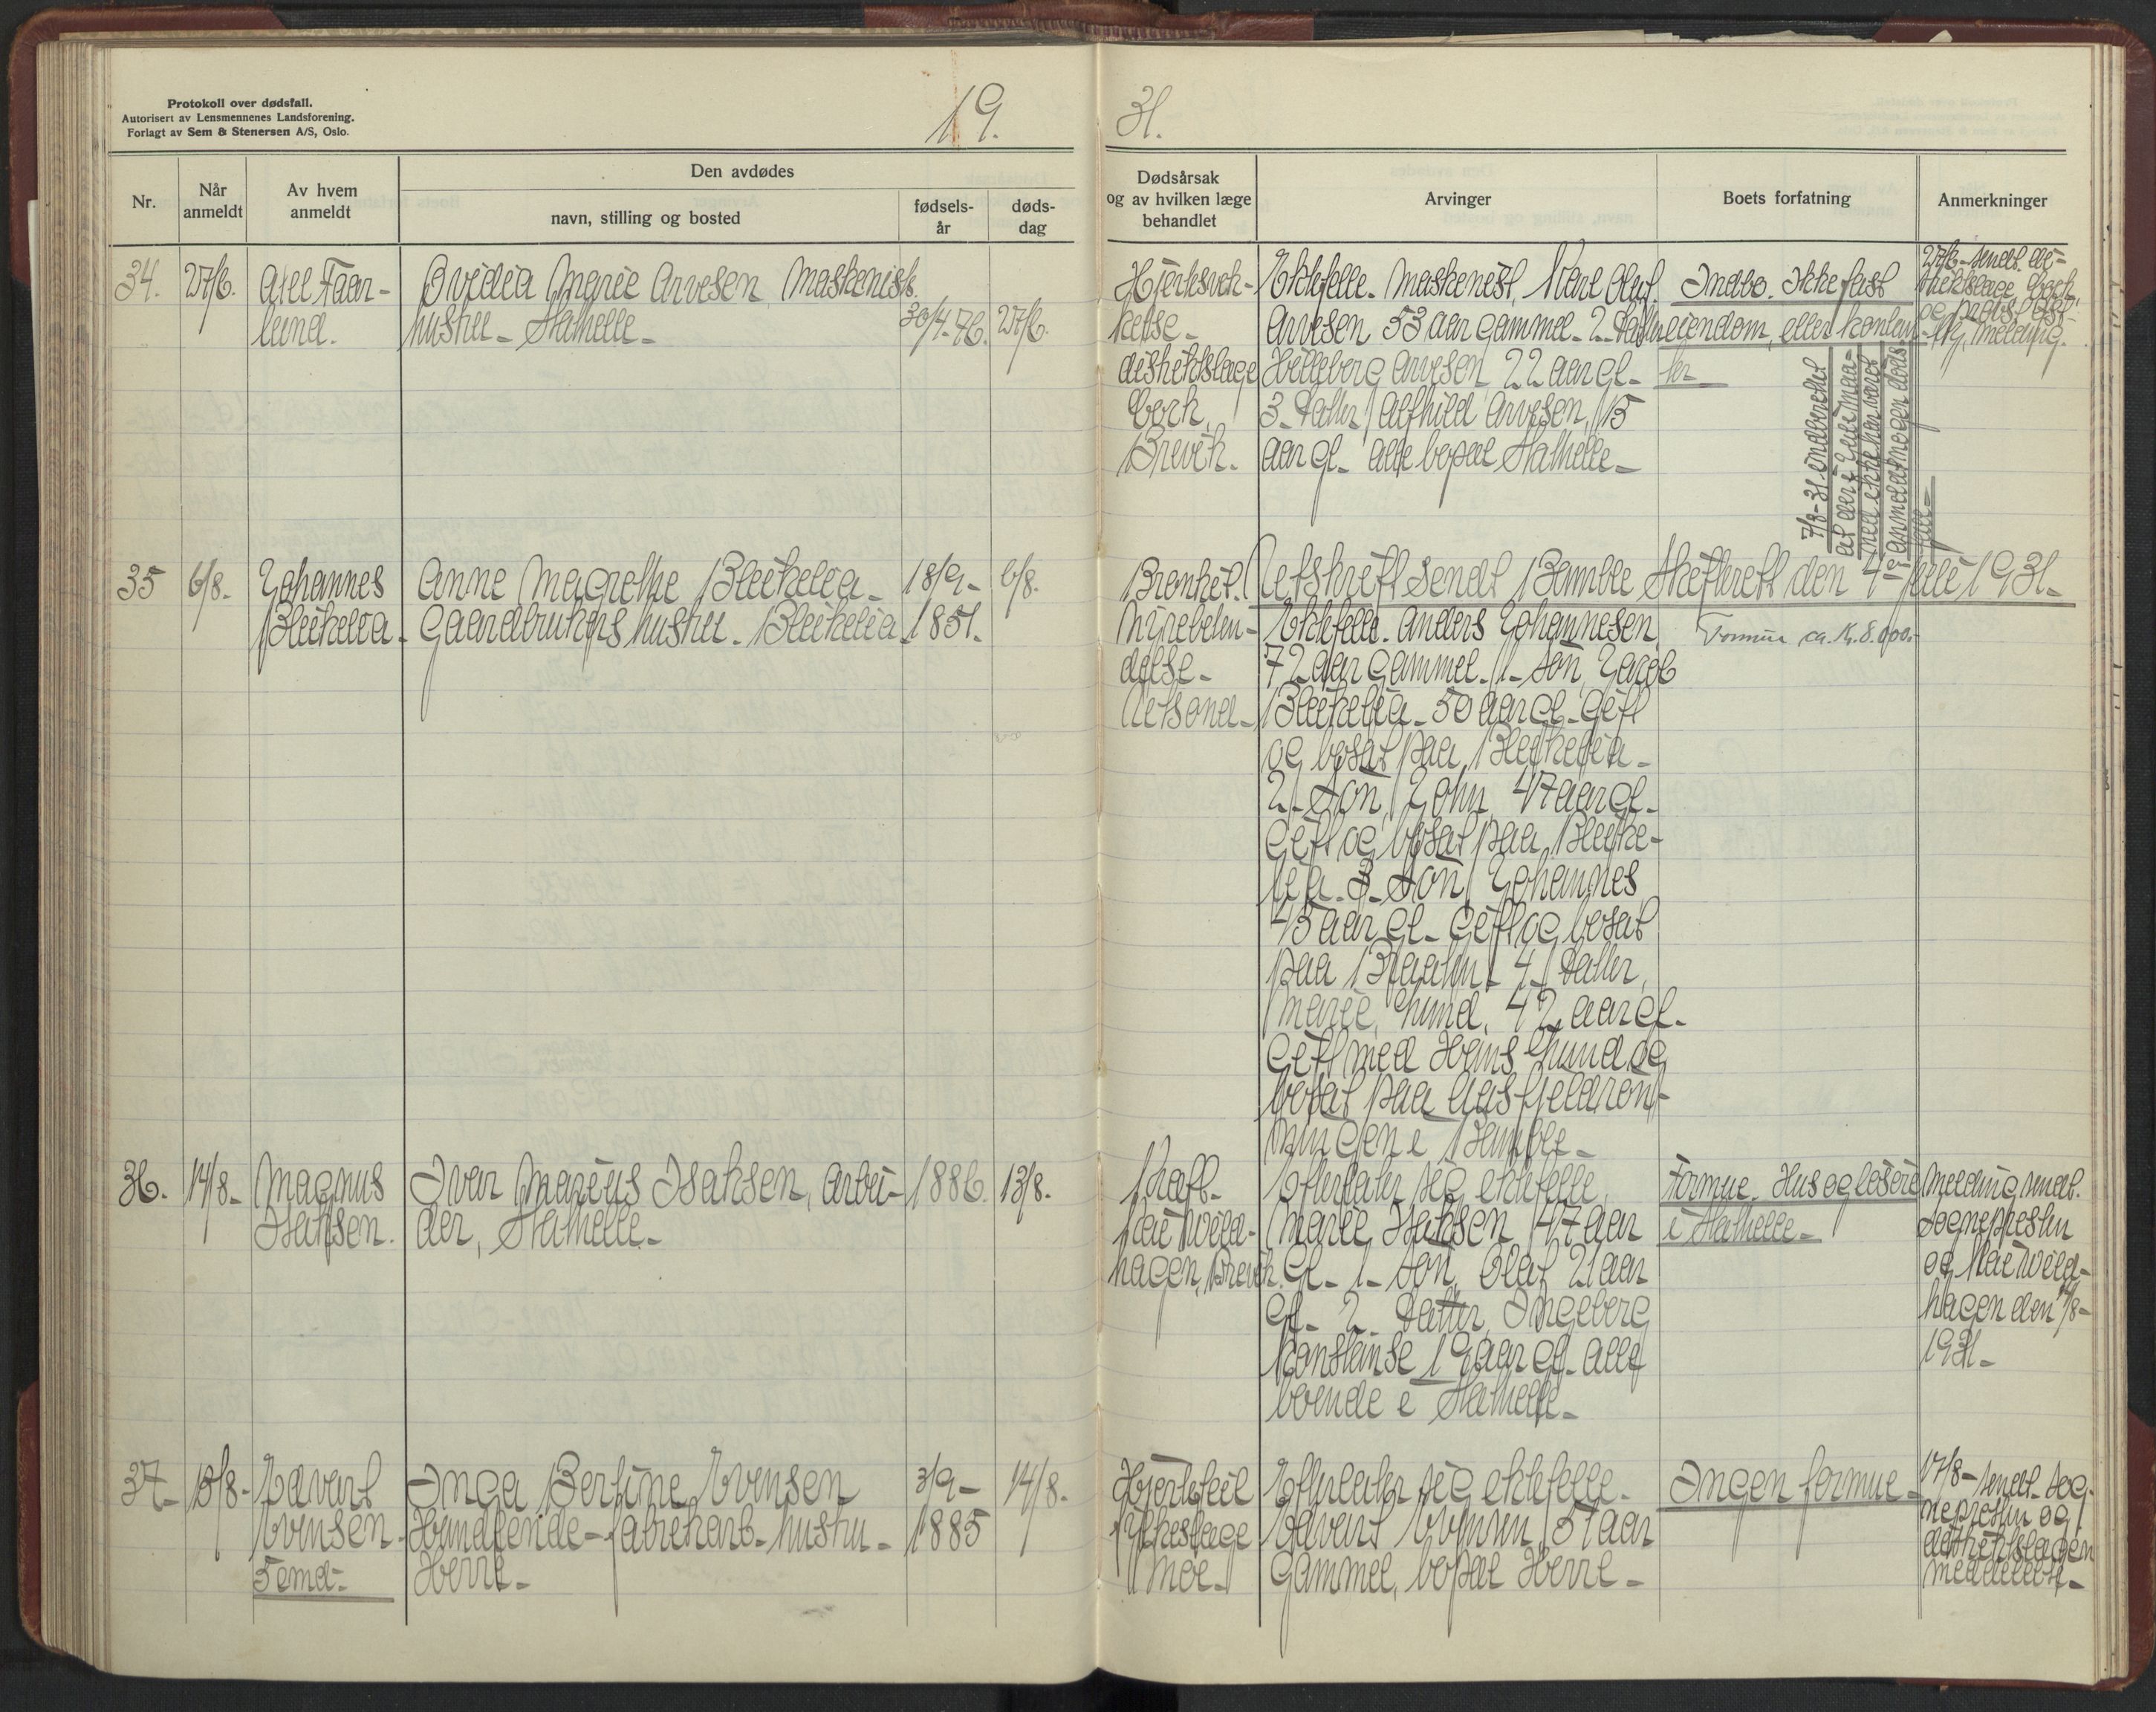 Protokoll over dødsfall.
Autorisert av Lensmennenes Landsforening.
Forlagt av Sem & Stenersen A/S, Oslo.
19.
31.
Nr.
Når
anmeldt
Av hvem
anmeldt
Den avdødes
navn, stilling og bosted
fødsels-
år
døds-
dag
Dødsårsak
og av hvilken læge
behandlet
Arvinger
Boets forfatning
Anmerkninger
34.
27/6.
Axel Faar-
lund.
Ovidia Marie Arvesen, Maskinist-
hustru - Stathelle -
30/4-76.
27/6.
Hjertesvek-
kelse -
distriktslæge
Brevik.
Ektefelle. Maskinist, Karl Oluf
Arvesen 53 aar gammel - 2 - datter
Arvesen 22 aar gl -
3 - datter, Alfhild Arvesen, 15
aar gl - alle bopæl Stathelle -
Indbo. Ikke fast
eiendom, eller kontan-
ter
27/6 - sendt di-
striktslæge
melding.
7/8-31 indberettet
35
6/8.
Johannes
Bleikelia -
Anne Magrethe Bleikelia -
Gaardbrukers hustru - Bleikelia -
18/9-
1851.
6/8.
Bronkit.
Nyrebeten-
delse -
Utskrift sendt Bamble Skifterett den 4 - juli 1931 -
Ektefelle. Anders Johannesen,
72 aar gammel - 1 - søn, Jacob
Bleikelia - 50 aar gl - gift
og bosat paa Bleikelia -
2 - søn, John, 47 aar gl -
gift og bosat paa Bleike-
lia - 3 - søn, Johannes
45 aar gl - gift og bosat
paa - 4 - datter,
Marie Lund, 42 aar gl -
gift med Hans Lund og
bosat paa
ningen i Bamble -
Formue ca. Kr. 8.000.-
36.
14/8 -
Magnus
Isaksen.
Ivar Marius Isaksen, arbei-
der, Stathelle -
1886.
13/8.
Kræft -
hagen, Brevik.
Efterlater sig ektefelle,
Marie Isaksen, 47 aar
gl - 1 - søn, Olaf 21 aar
gl - 2 - datter, Ingeborg
Konstanse 19 aar gl - alle
boende i Stathelle -
Formue. Hus og løsøre
i Stathelle -
Melding sendt.
Sognepresten
og
hagen den 14/8 -
1931 -
37 -
15/8 -
Edvart
Evensen -
Inga Bertine Evensen
- fabrikarb - hustru -
Herre -
3/9 -
1885
14/8 -
Hjertefeil
Moe -
Efterlater sig ektefelle -
Edvart Evensen, 51 aar
gammel, bopæl Herre -
Ingen formue -
17/8 - sendt sog-
nepresten og
distriktslægen
meddelelse -